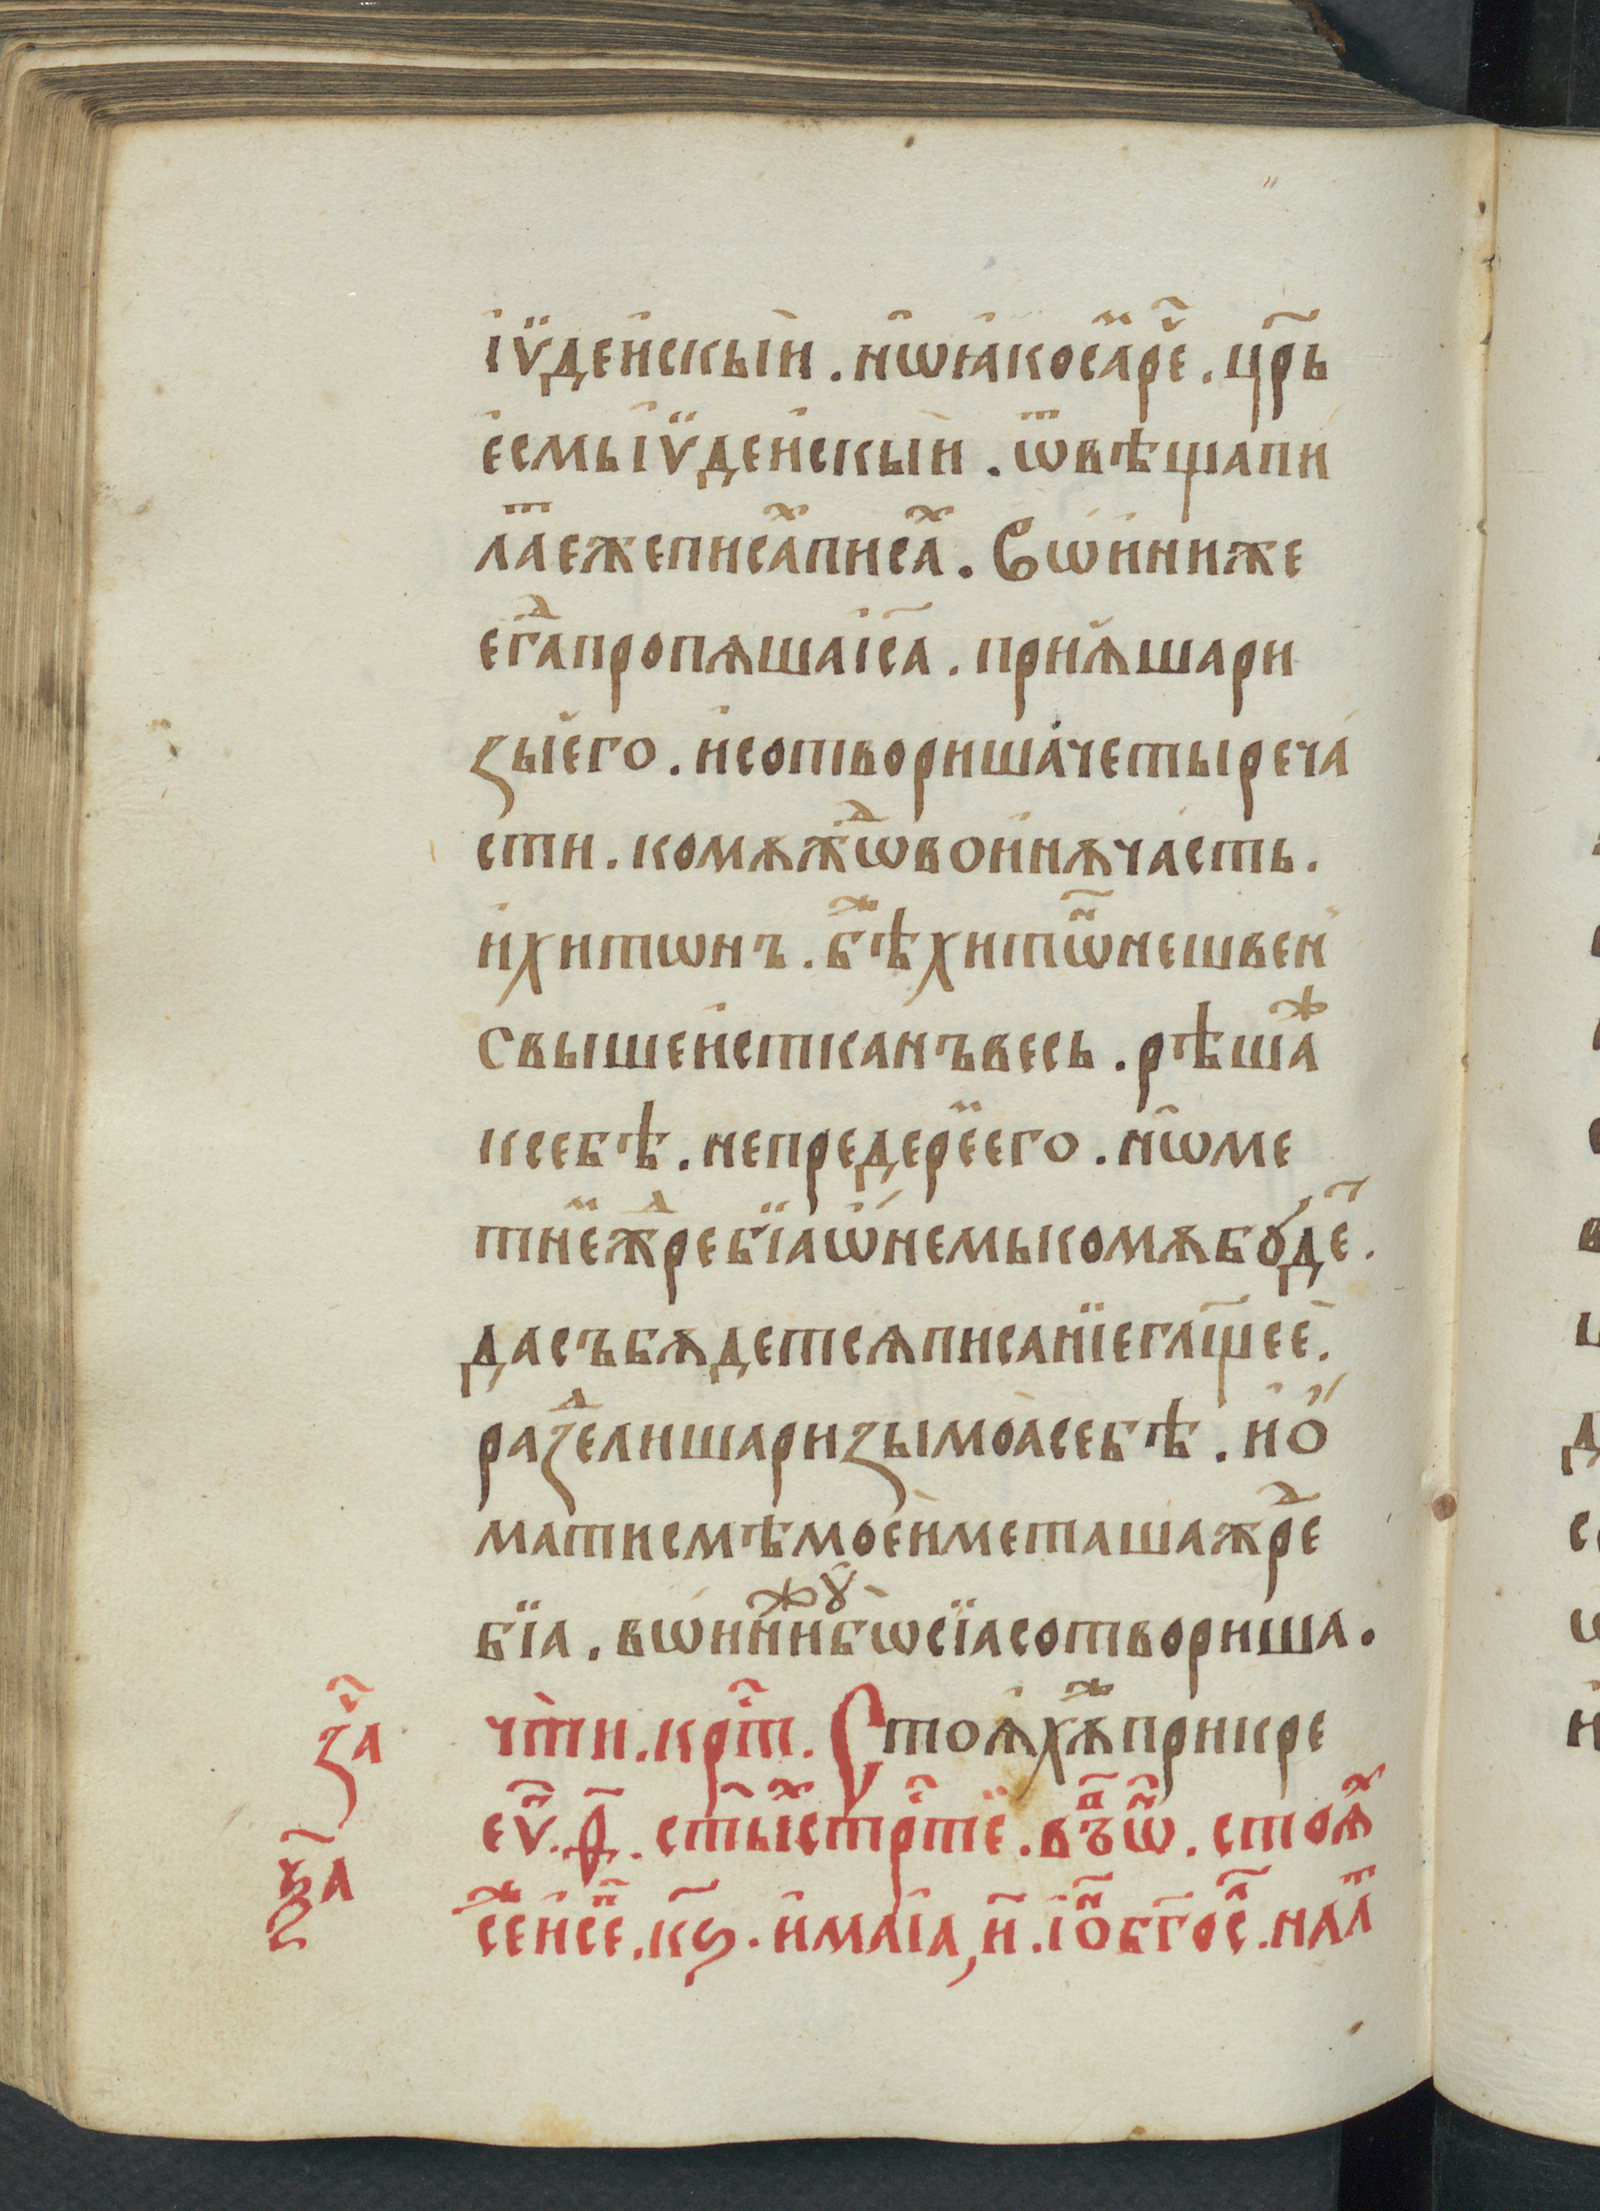 іѵ҆дейскый . нѡꙗкосамре҄ . цр҃ь
есмьіѵ҆дейскый . ѿвѣщапи
лаⷮежеписаⷯписаⷯ . Вѡиниже
егдⷣапропѧшаіс҃а . пріѧшари
зыего . исотворишачетыреча
сти . комѫжⷣѡвоинѫчасть .
ихитѡнъ . бѣⷤхитѡⷩ҇нешвен
свышеисткан​ъвесь . рѣшаⷤ
ксебѣ . непредереⷨего . нѡме
тнеⷨжⷣребїаѡнемькомѫбꙋдеⷮ .
дасъбѫдетсѧписанїеглщ҃ее .
разⷣелишаризымоасебѣ . ио҆
матисмѣмоейметашажⷣре
бїа . вѡиниⷤꙋбѡсїасотвориша .
заⷱ҇ чⷭ҇тни . крⷭ҇т . Стоꙗхѫⷤприкре
еѵⷢ҇ . ѳ҃ . стыⷯстрⷭ҇теⷨ . възⷪ҇ѡⷩ҇ . стоѧⷯ
ѯ҃а сеⷤисеⷫ҇ . кѕ҃ . имаіа , и҃ . іѡⷩ҇бг҃ос҇ⷧ . налⷮ